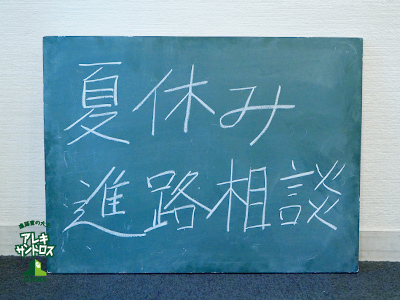 夏休み
進路相談
アレキ
サンドロス